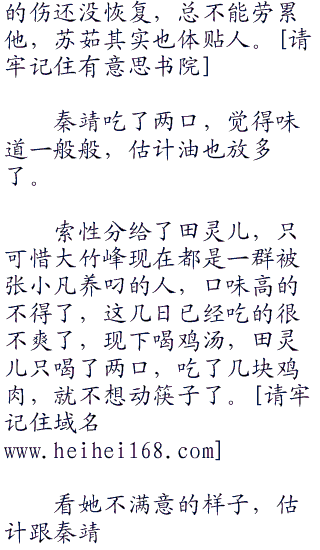 的伤还没恢复，总不能劳累
他，苏茹其实也体贴人。[请
牢记住有意思书院]
秦靖吃了两口，觉得味
道一般般，估计油也放多
了。
索性分给了田灵儿，只
可惜大竹峰现在都是一群被
张小凡养叼的人，口味高的
不得了，这几日已经吃的很
不爽了，现下喝鸡汤，田灵
儿只喝了两口，吃了几块鸡
肉，就不想动筷子了。[请牢
记住域名
www.heihei168.com]
看她不满意的样子，估
计跟秦靖